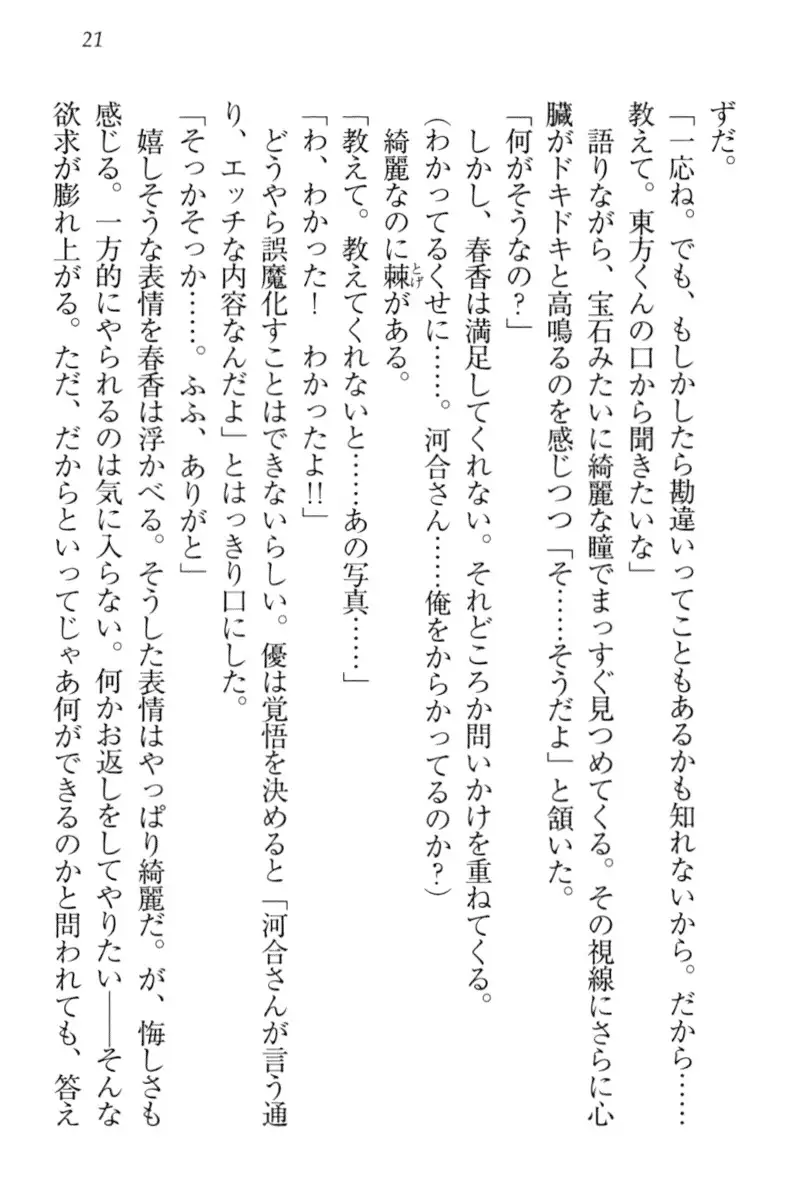 21
ずだ。
「一応ね。でも、もしかしたら勘違いってこともあるかも知れないから。だから……
教えて。東方くんの口から聞きたいな」
語りながら、宝石みたいに綺麗な瞳でまっすぐ見つめてくる。その視線にさらに心
臓がドキドキと高鳴るのを感じつつ「そ……そうだよ」と頷いた。
「何がそうなの？」
しかし、春香は満足してくれない。それどころか問いかけを重ねてくる。
（わかってるくせに……。河合さん……俺をからかってるのか？）
綺麗なのに棘とげがある。
「教えて。教えてくれないと……あの写真……」
「わ、わかった！　わかったよ!!」
どうやら誤魔化すことはできないらしい。優は覚悟を決めると「河合さんが言う通
り、エッチな内容なんだよ」とはっきり口にした。
「そっかそっか……。ふふ、ありがと」
嬉しそうな表情を春香は浮かべる。そうした表情はやっぱり綺麗だ。が、悔しさも
感じる。一方的にやられるのは気に入らない。何かお返しをしてやりたい――そんな
欲求が膨れ上がる。ただ、だからといってじゃあ何ができるのかと問われても、答え